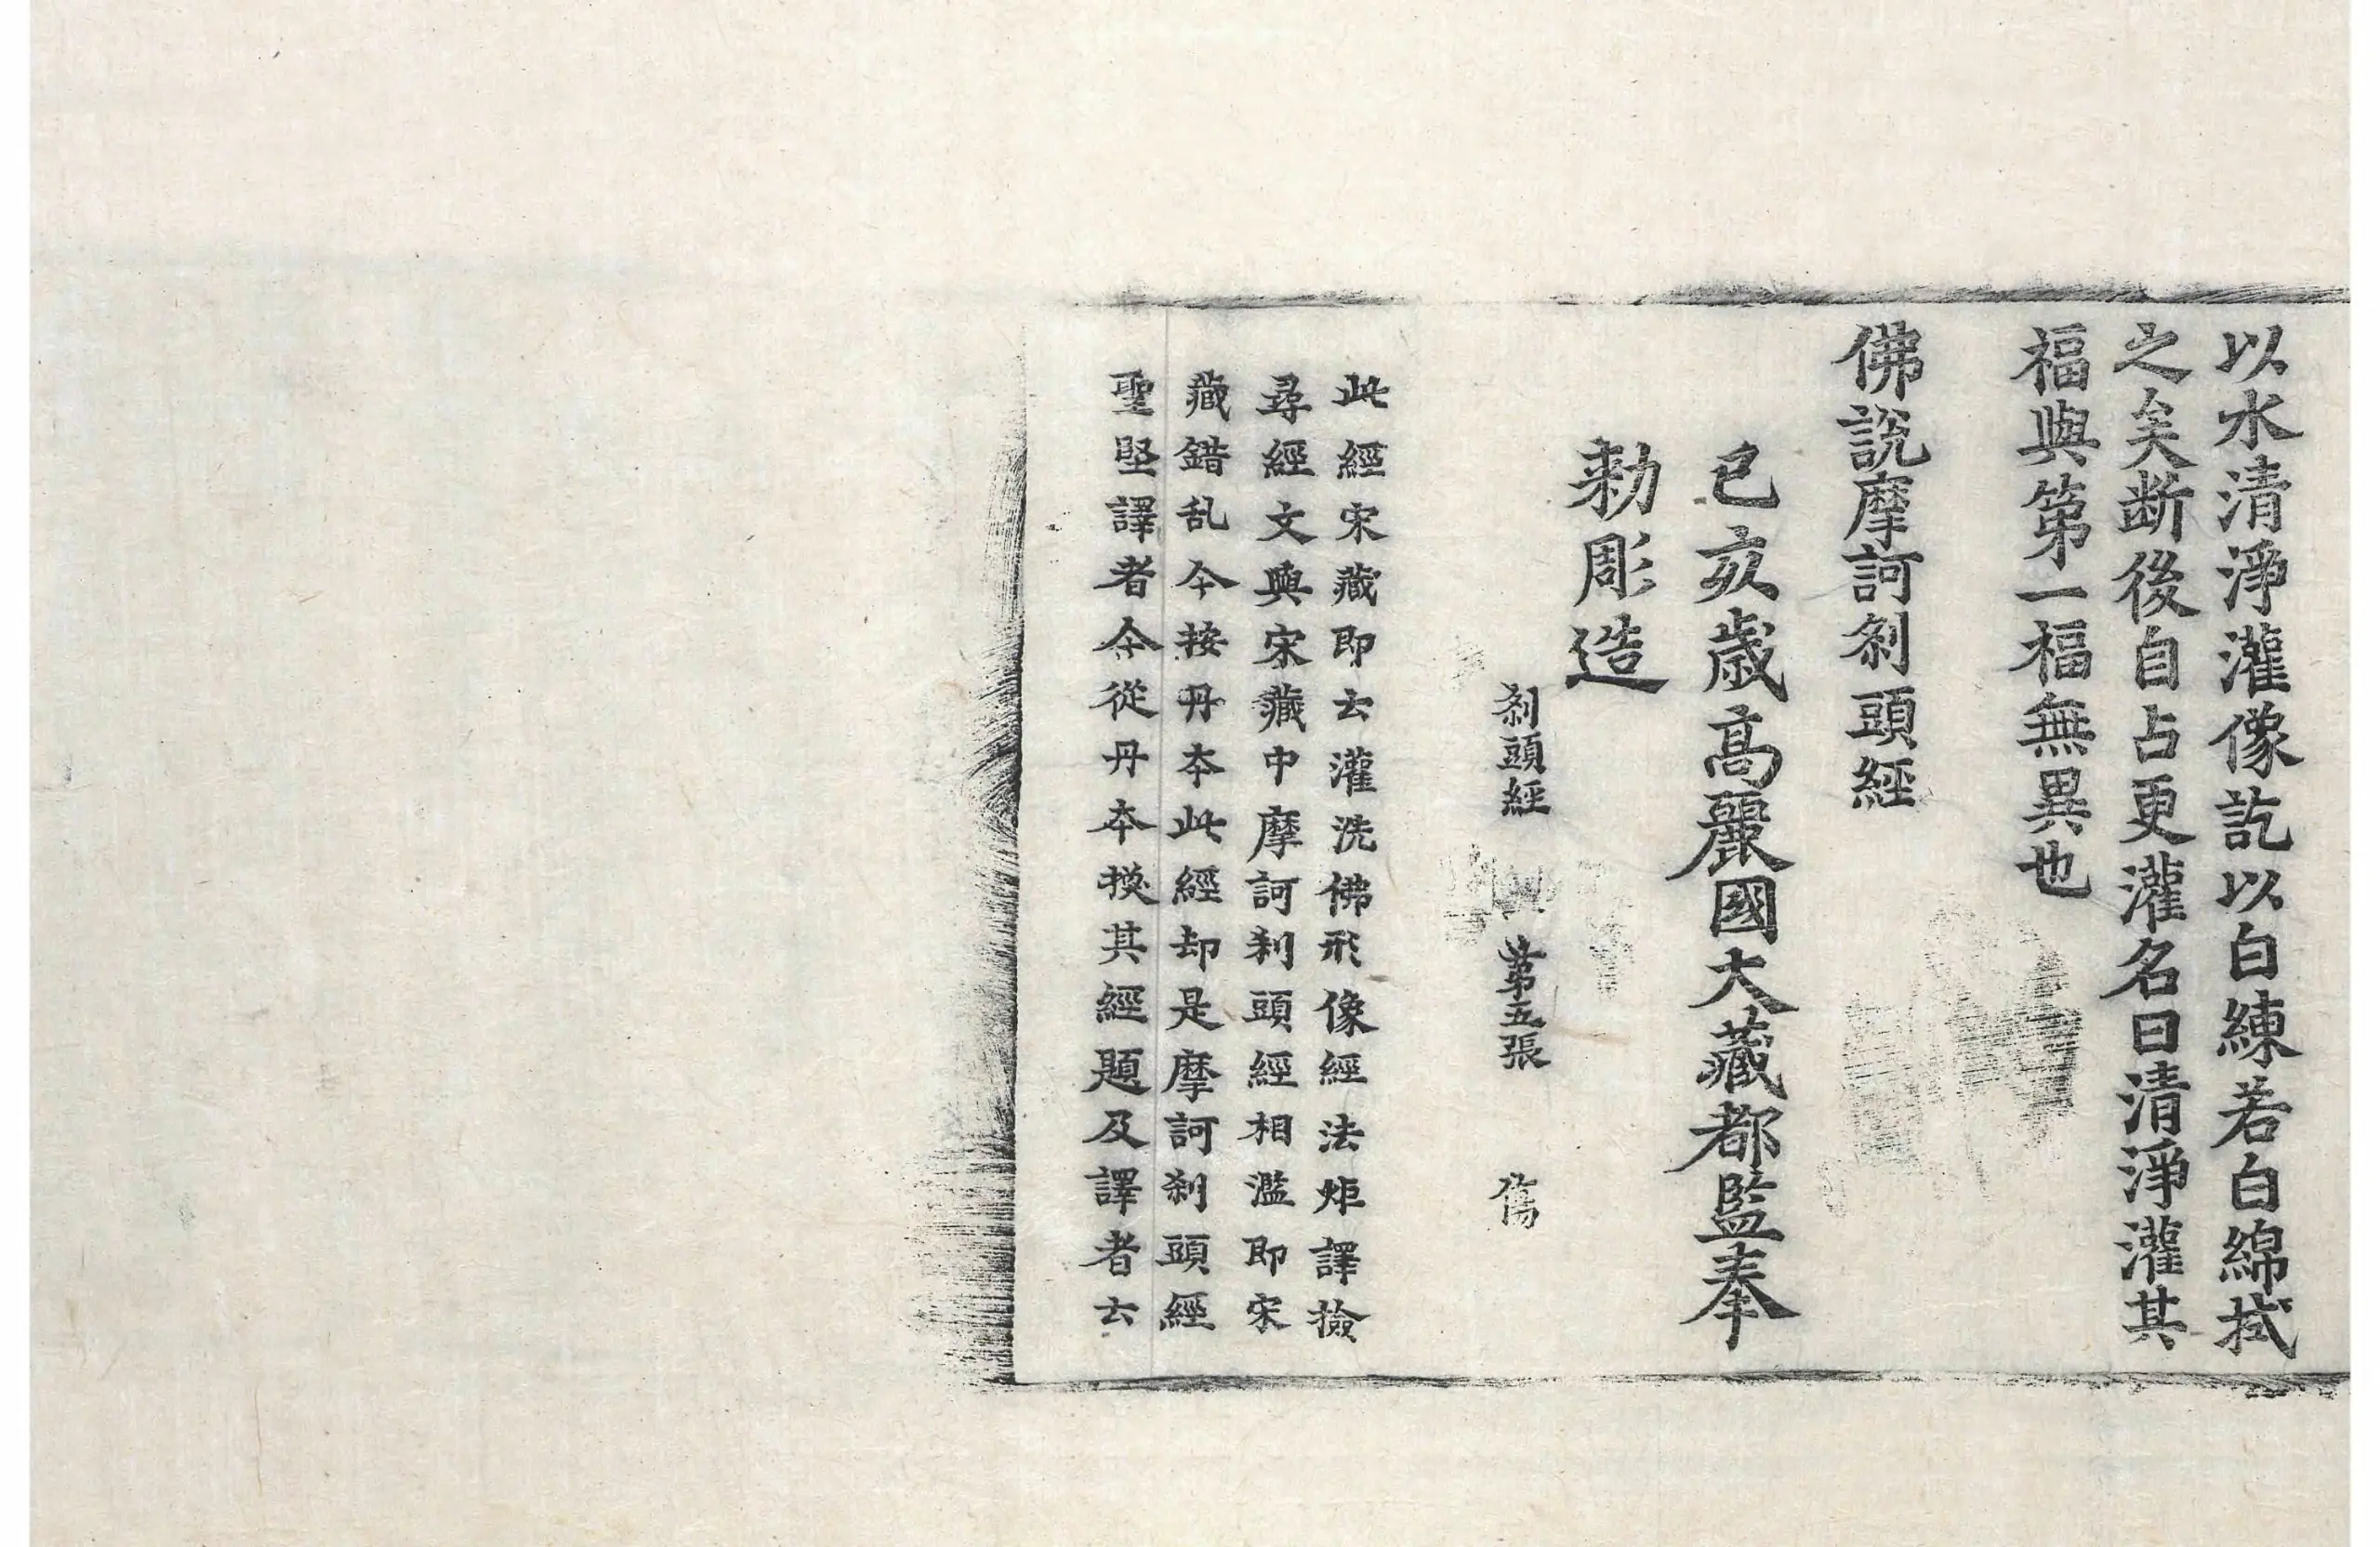 以水清淨灌像訖以白練若白綿拭
之矣斷後自占更灌名曰清淨灌其
福與第一福無異也
佛說摩訶剎頭經
己亥歲高麗國大藏都監奉
勑彫造
剎頭經 第五張 傷
此經宋藏即云灌洗佛形像經法炬譯撿
尋經文與宋藏中摩訶刹頭經相濫即宋
藏錯乱今按丹本此經却是摩訶刹頭經
聖堅譯者今從丹本換其經題及譯者云